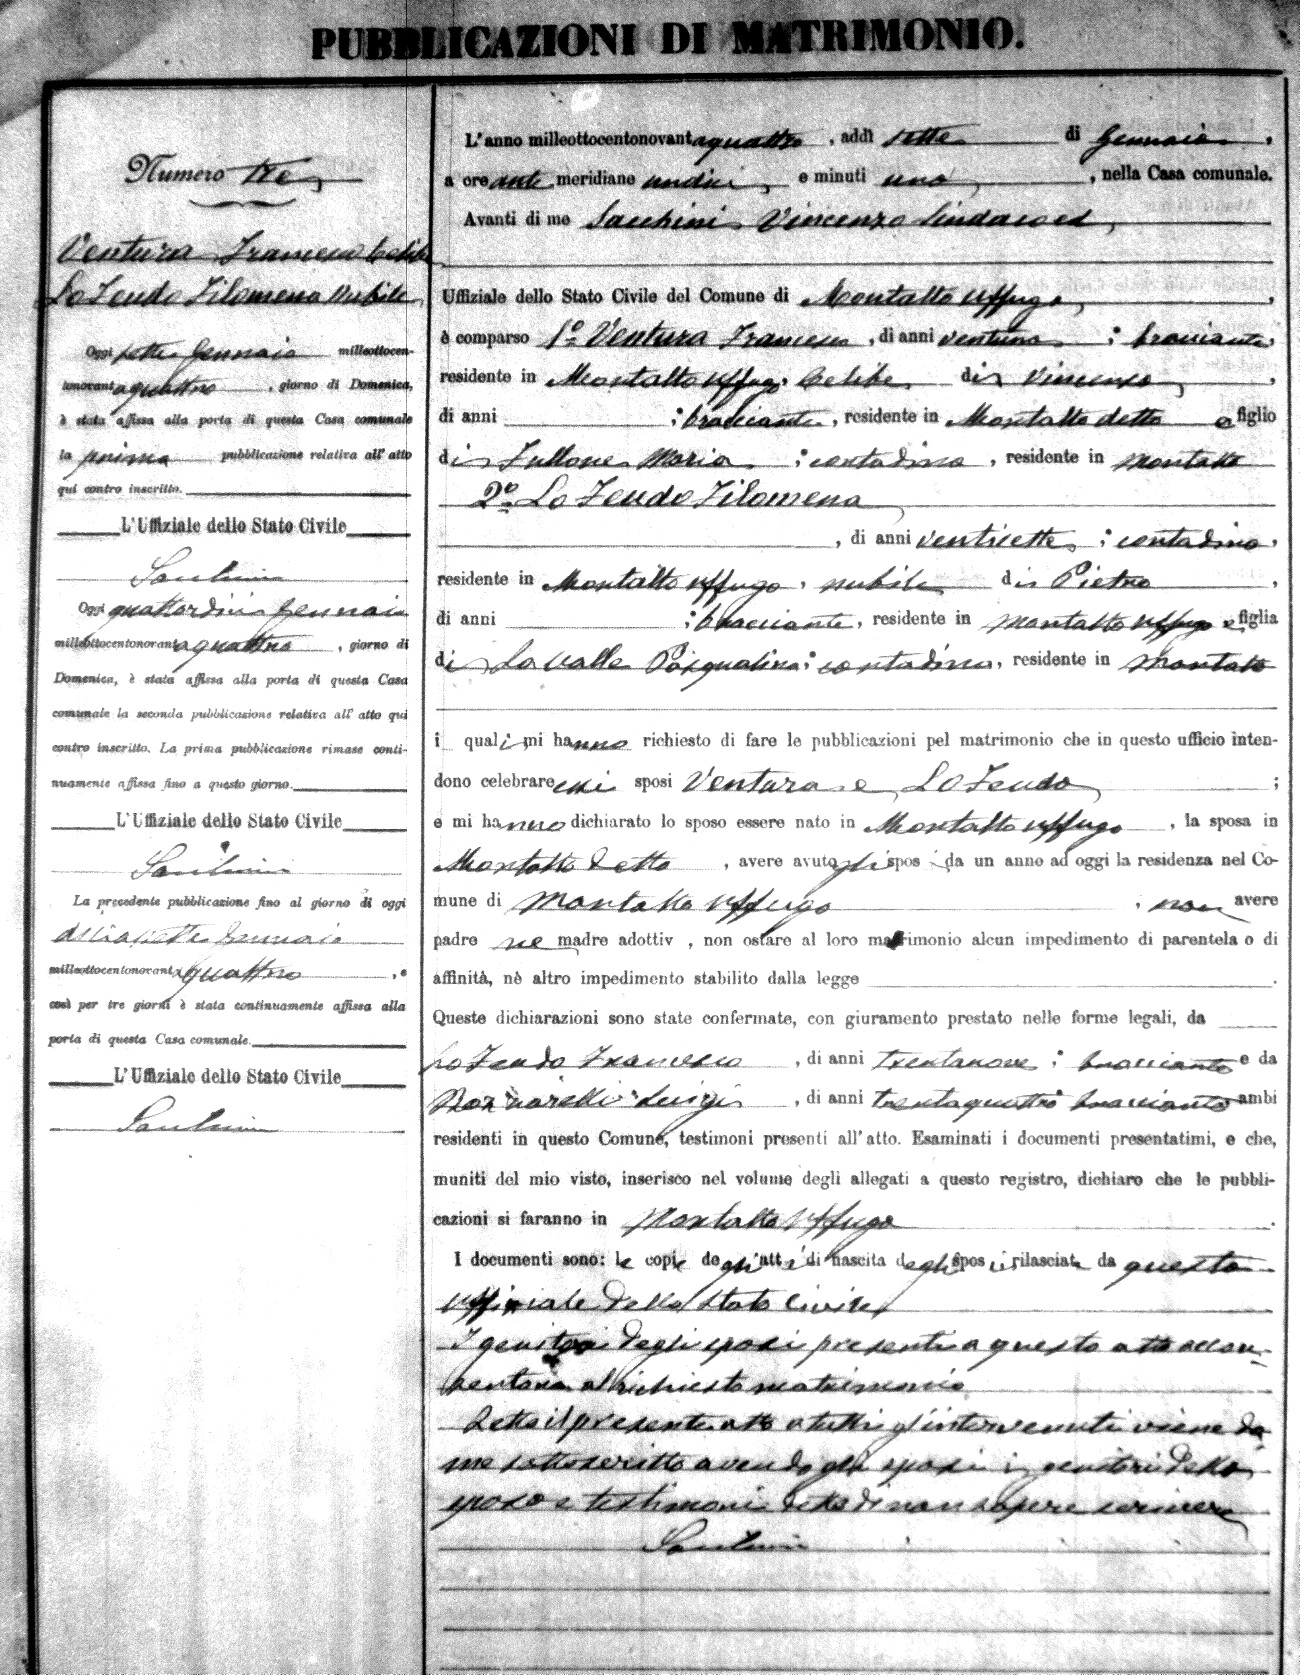 PUBBLICAZIONI DI MATRIMONIO.
Numero tre
Ventura Francesco Celibe
Lo Feudo Filomena Nubile
Oggi sette Gennaio milleottocen-
tonovantaquattro, giorno di Domenica,
è stata affissa alla porta di questa Casa comunale
la prima pubblicazione relativa all'atto
qui contro inscritto.
L'Uffiziale dello Stato Civile
Sacchini
Oggi quattordici Gennaio
milleottocentonovantaquattro, giorno di
Domenica, è stata affissa alla porta di questa Casa
comunale la seconda pubblicazione relativa all'atto qui
contro inscritto. La prima pubblicazione rimase conti-
nuamente affissa fino a questo giorno.
L'Uffiziale dello Stato Civile
Sacchini
La precedente pubblicazione fino al giorno di oggi
diciasette Gennaio
milleottocentonovantaquattro, e
così per tre giorni è stata continuamente affissa alla
porta di questa Casa comunale.
L'Uffiziale dello Stato Civile
Sacchini
L'anno milleottocentonovantaquattro, addì sette di Gennaio,
a ore ante meridiane undici, e minuti uno, nella Casa comunale.
Avanti di me Sacchini Vincenzo Sindaco ed
Uffiziale dello Stato Civile del Comune di Montalto Uffugo,
è comparso 1º Ventura Francesco, di anni ventuno; bracciante,
residente in Montalto Uffugo, Celibe di Vincenzo,
di anni ; bracciante, residente in Montalto detto e figlio
di Fullone Maria; contadina, residente in Montalto
2º Lo Feudo Filomena
, di anni ventisette; contadina,
residente in Montalto Uffugo, nubile di Pietro,
di anni ; bracciante, residente in Montalto Uffugo e figlia
di La Valle Pasqualina; contadina, residente in Montalto
i quali mi hanno richiesto di fare le pubblicazioni pel matrimonio che in questo ufficio inten-
dono celebrare essi sposi Ventura e Lo Feudo;
e mi hanno dichiarato lo sposo essere nato in Montalto Uffugo, la sposa in
Montalto detto, avere avuto gli sposi da un anno ad oggi la residenza nel Co-
mune di Montalto Uffugo, non avere
padre ne madre adottiv, non ostare al loro matrimonio alcun impedimento di parentela o di
affinità, nè altro impedimento stabilito dalla legge.
Queste dichiarazioni sono state confermate, con giuramento prestato nelle forme legali, da
Lo Feudo Francesco, di anni trentanove; bracciante e da
Luigi, di anni trentaquattro bracciante ambi
residenti in questo Comune, testimoni presenti all'atto. Esaminati i documenti presentatimi, e che,
muniti del mio visto, inserisco nel volume degli allegati a questo registro, dichiaro che le pubbli-
cazioni si faranno in Montalto Uffugo.
I documenti sono: le copie degli atti di nascita degli sposi rilasciate da questo
Uffiziale dello Stato Civile
I genitori degli sposi presenti a questo atto accon-
sentono al richiesto matrimonio
Letto il presente atto a tutti gl'intervenuti viene da
me sottoscritto avendo gli sposi i genitori dello
sposo e testimoni detto di non sapere scrivere
Sacchini